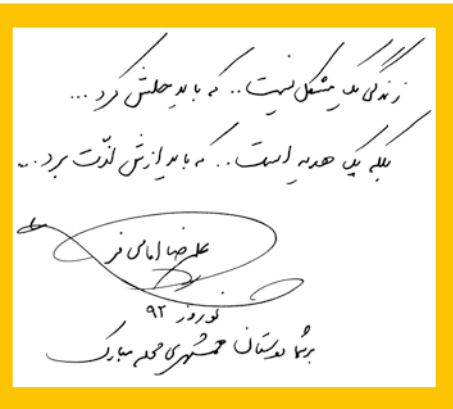 زندگی یک مشکل نیست.. که باید حلش کرد...
بلکه یک هدیه است.. که باید ازش لذّت برد...
علیرضا امامی فر
نوروز ۹۲
بر شما دوستان همشهری محله مبارک